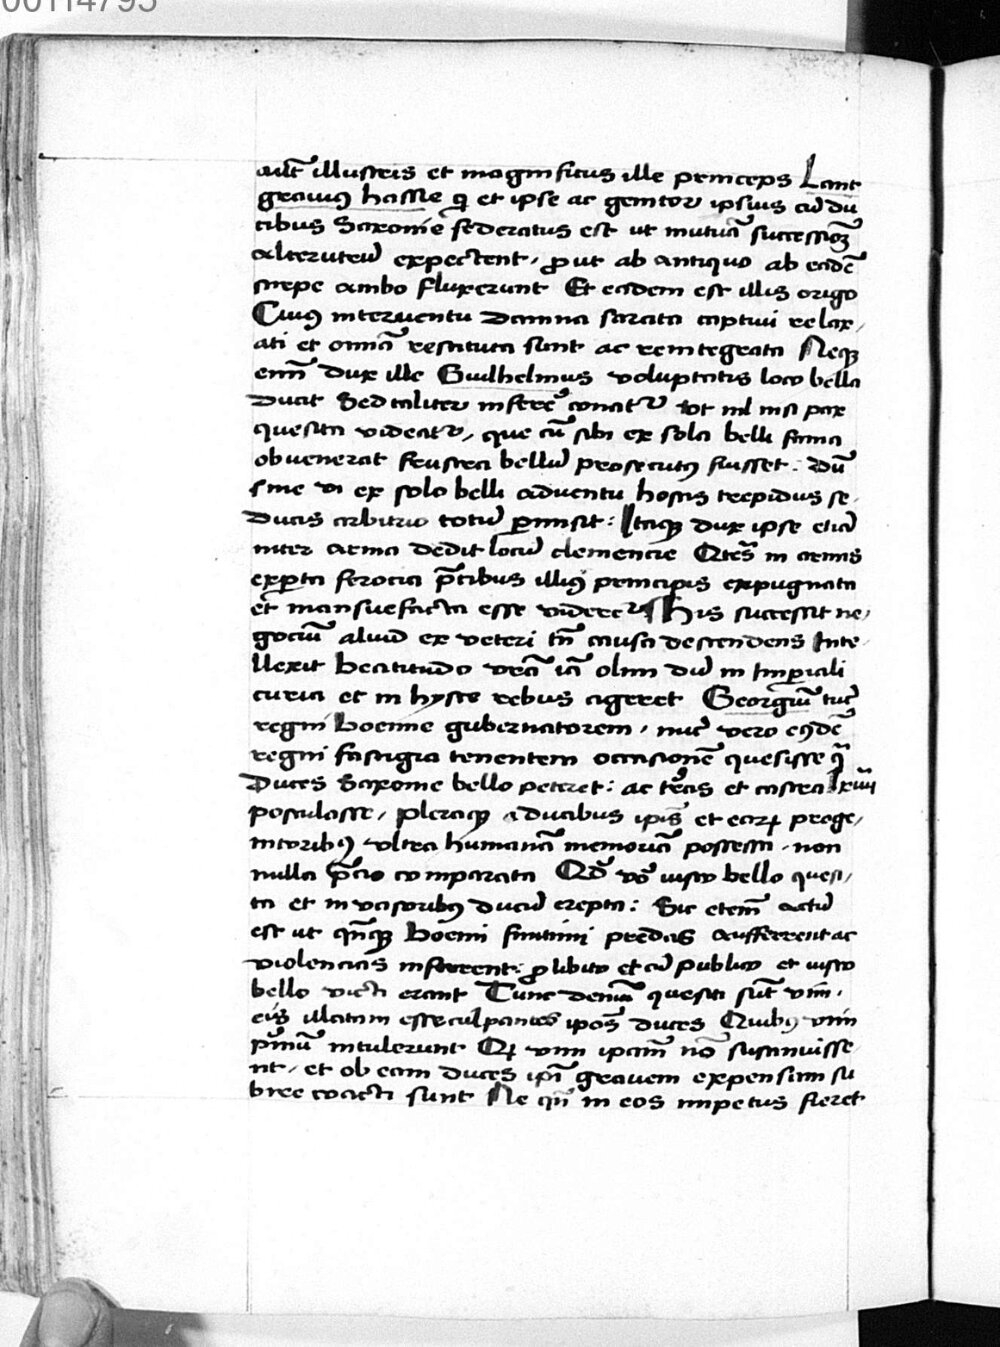 00114795
aut̄ illustris et magnificus ille princeps Lant
grauiꝰ hassie qͥ et ipse ac genitor ipsius cū du
cibus Saxonie federatus est ut mutuā successioꝫ
alterutrū expectent, ꝓut ab antiquo ab eadē
stirpe ambo fluxerunt Et eadem est illis origo
Cuiꝰ interuentu Damna sarcita captiui relax,
ati et omīa restituta sunt ac reintegrata Neqꝫ
enī dux ille Guilhelmus voluptatis loco bella
Ducit Sed taliter infer̄e conatᷣ Vt nil nisi pax
quesita videatᷣ, que cū sibi ex sola belli fama
obuenerat frustra bellū prosecutꝰ fuisset: dū
sine vi ex solo belli aduentu hostis trepidus se
Ducis arbitrio totū ꝑmisit: Itaqꝫ dux ipse etiā
inter arma dedit locū clemencie in armis
exꝑta ferocia p̄cibus illiꝰ principis expugnata
et mansuefacta esse videretᷣ His successit ne,
gociū aliud ex veteri tn̄ causa descendens Inte,
llexit beatitudo vrā iā olim dū in Imꝑiali
curia et in hysce rebus ageret Georgiū tūc
regni boemie gubernatorem, nūc vero eiꝰdē
regni fastigia tenentem occasionē quesisse
Duces Saxonie bello peteret: ac t̄ras et castra lxiiii
postulasse, pleraqꝫ a ducibus ipīs et eorꝝ proge,
nitoribꝰ vltra humanā memoriā possessa, non
nulla p̄cio comparata Qd̄ vō iusto bello quesi,
ta et inuasoribꝰ ducū erepta: Sic etenī actū
est ut boemi finitimi predas aufferrent ac
violencias inferrent: ꝓ libito et cū publico et iusto
bello victi erant Tunc demū questi sūt vim,
eis illatam esse culpantes ipōs duces Quibꝰ vim
p̄mū intulerunt Qꝝ vim ipām nō sustinuisse
nt, et ob eam duces ipī grauem expensam su
bire coacti sunt Ne qn̄ in eos impetus fieret